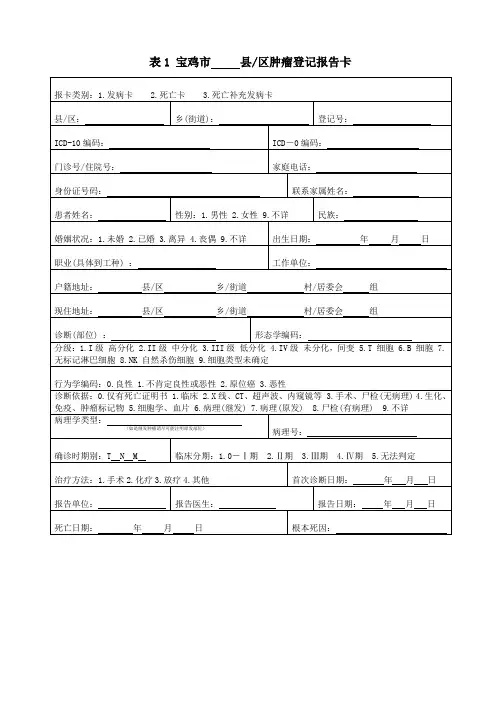 表1 宝鸡市____县/区肿瘤登记报告卡
报卡类别：1.发病卡 2.死亡卡 3.死亡补充发病卡
县/区： 乡(街道)： 登记号：
ICD-10编码： ICD－0编码：
门诊号/住院号： 家庭电话：
身份证号码： 联系家属姓名：
患者姓名： 性别：1.男性 2.女性 9.不详 民族：
婚姻状况：1.未婚 2.已婚 3.离异 4.丧偶 9.不详 出生日期： 年 月 日
职业(具体到工种)： 工作单位：
户籍地址： 县/区 乡/街道 村/居委会 组
现住地址： 县/区 乡/街道 村/居委会 组
诊断(部位)： 形态学编码：
分级：1.I级 高分化 2.II级 中分化 3.III级 低分化 4.IV级 未分化，间变 5.T 细胞 6.B 细胞 7.
无标记淋巴细胞 8.NK 自然杀伤细胞 9.细胞类型未确定
行为学编码：0.良性 1.不肯定良性或恶性 2.原位癌 3.恶性
诊断依据：0.仅有死亡证明书 1.临床 2.X线、CT、超声波、内窥镜等 3.手术、尸检(无病理) 4.生化、
免疫、肿瘤标记物 5.细胞学、血片 6.病理(继发) 7.病理(原发) 8.尸检(有病理) 9.不详
病理学类型：
病理号：
确诊时期别：T N M 临床分期：1.0－Ⅰ期 2.Ⅱ期 3.Ⅲ期 4.Ⅳ期 5.无法判定
治疗方法：1.手术2.化疗3.放疗4.其他 首次诊断日期： 年 月 日
报告单位： 报告医生： 报告日期： 年 月 日
死亡日期： 年 月 日 根本死因：